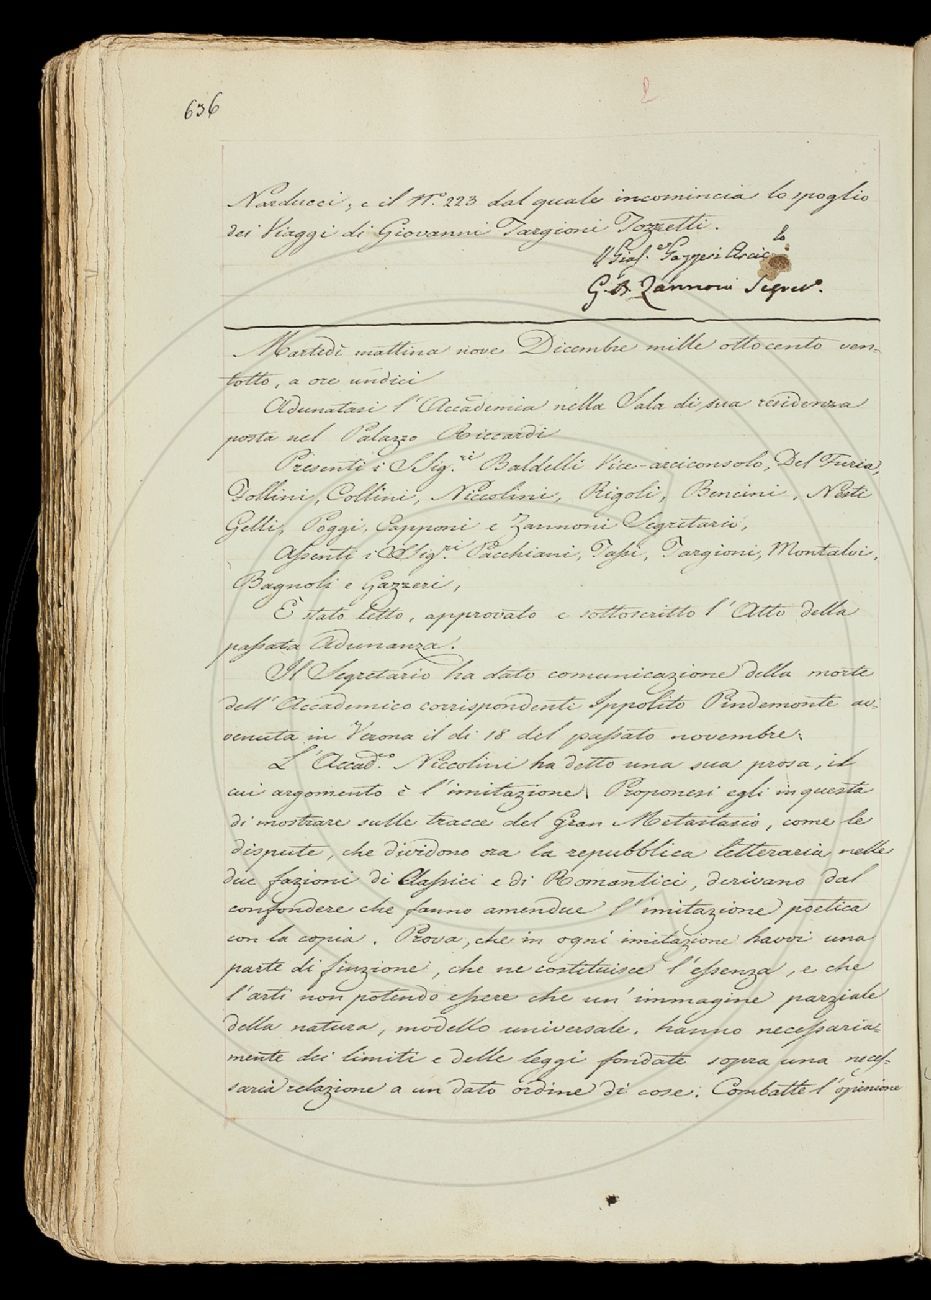 636
2
Narducci, e il N.° 223 dal quale incomincia lo spoglio
dei Viaggi di Giovanni Targioni Tozzetti.
Gazzeri Arcic
lo
G. B. Zannoni Segret.°
Martedì mattina nove Dicembre mille ottocento ven-
totto, a ore undici
Adunatasi l'Accademia nella Sala di sua residenza
posta nel Palazzo Riccardi
Presenti i SSig.ri Baldelli Vice-arciconsolo, Del Furia,
Follini, Collini, Niccolini, Rigoli, Bencini, Nesti
Gelli, Poggi, Capponi e Zannoni Segretario,
Assenti i SSig.ri Pacchiani, Tassi, Targioni, Montalvi,
Bagnoli e Gazzeri,
È stato letto, approvato e sottoscritto l'Atto della
passata Adunanza.
Il Segretario ha dato comunicazione della morte
dell'Accademico corrispondente Ippolito Pindemonte av-
venuta in Verona il dì 18 del passato novembre.
L'Accad.co Niccolini ha detto una sua prosa, il
cui argomento è l'imitazione. Proponesi egli in questa
di mostrare sulle tracce del Gran Metastasio, come le
dispute, che dividono ora la repubblica letteraria nelle
due fazioni di Classici e di Romantici, derivano dal
confondere che fanno amendue l'imitazione poetica
con la copia. Prova, che in ogni imitazione havvi una
parte di finzione, che ne costituisce l'essenza, e che
l'arti non potendo essere che un'immagine parziale
della natura, modello universale, hanno necessaria-
mente dei limiti e delle leggi fondate sopra una neces-
saria relazione a un dato ordine di cose. Combatte l'opinione